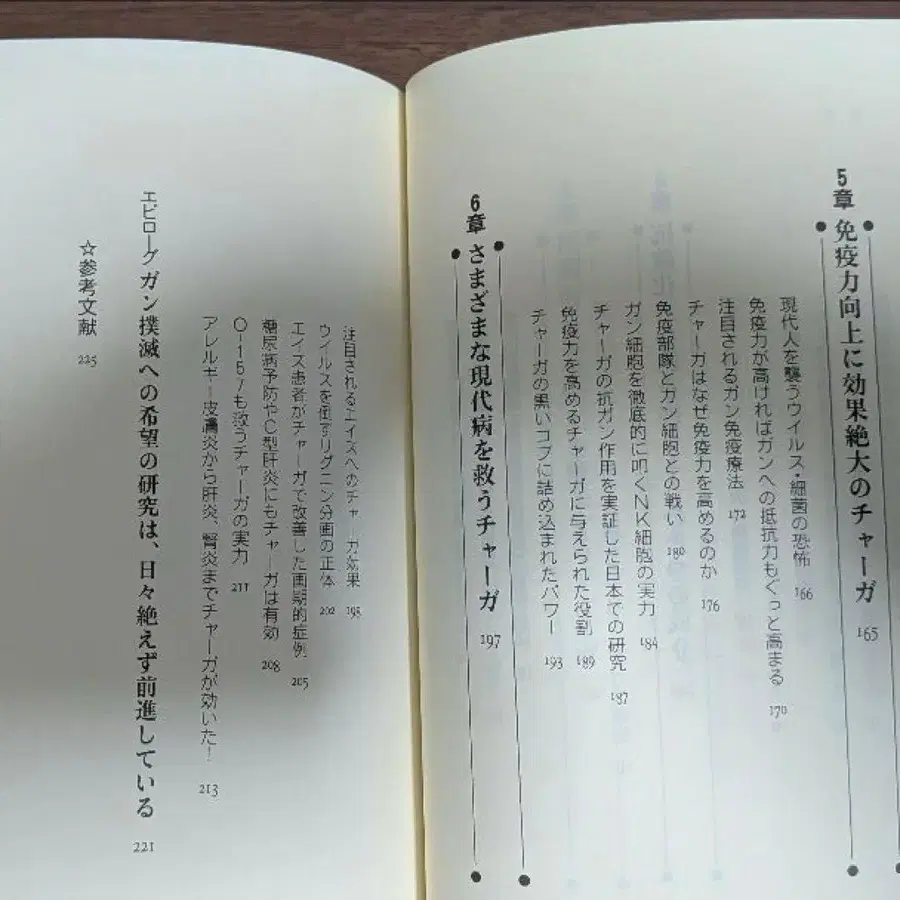 5章 免疫力向上に効果絶大のチャーガ 165
現代人を襲うウイルス・細菌の恐怖 166
免疫力が高ければガンへの抵抗力もぐっと高まる 170
注目されるガン免疫療法 172
チャーガはなぜ免疫力を高めるのか 176
免疫部隊とガン細胞との戦い 180
ガン細胞を徹底的に叩くNK細胞の実力 184
チャーガの抗ガン作用を実証した日本での研究 187
免疫力を高めるチャーガに与えられた役割 189
チャーガの黒いコブに詰め込まれたパワー 193
6章 さまざまな現代病を救うチャーガ 197
注目されるエイズへのチャーガ効果 198
ウイルスを倒すリグニン分画の正体 202
エイズ患者がチャーガで改善した画期的症例 205
糖尿病予防やC型肝炎にもチャーガは有効 208
O-157も救うチャーガの実力 211
アレルギー皮膚炎から肝炎、腎炎までチャーガが効いた! 213
エピローグ ガン撲滅への希望の研究は、日々絶えず前進している 221
☆参考文献 225